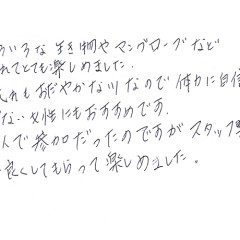 ろいろな生き物やマングローブなど
れてとても楽しめました.
れもおだやかな川なので体力に自信
ない女性にもおすすめです.
人で参加だったのですがスタッフ
良くしてもらって楽しめました。